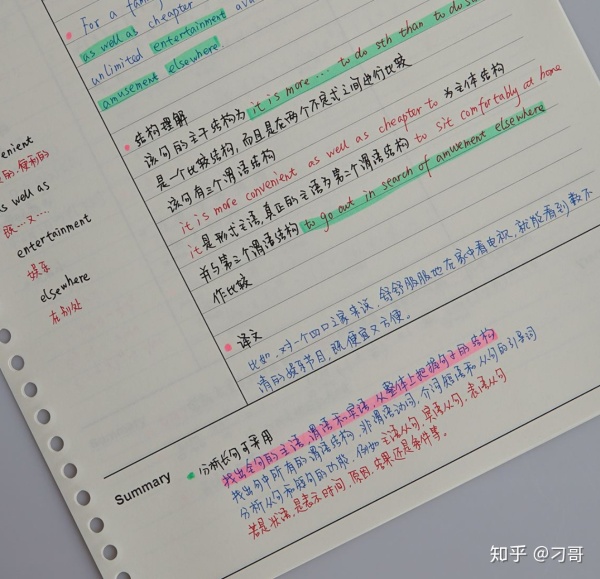 For a fam
as well as cheaper
unlimited entertainment ava
amusement elsewhere.
结构理解
该句的主干结构为 it is more ... to do sth than to do s
是一个比较结构,而且是在两个不定式之间进行比较
该句有三个谓语结构
it is more convenient as well as cheaper to 为主体结构
it是形式主语,真正的主语为第二个谓语结构 to sit comfortably at home
并与第三个谓语结构 to go out in search of amusement elsewhere
作比较
译文
比如,对一个四口之家来说,舒舒服服地在家中看电视,就能看到数不
清的娱乐节目,既便宜又方便。
enient
的,便利的
s well as
既…又…
entertainment
娱乐
elsewhere
在别处
Summary
分析长句可采用
找出全句的主语、谓语和宾语,从整体上把握句子的结构
找出句中所有的谓语结构、非谓语动词、介词短语和从句的引导词
分析从句和短句的功能,例如主语从句,宾语从句,表语从句
若是状语,是表示时间,原因,结果还是条件等。
知乎 @刁哥